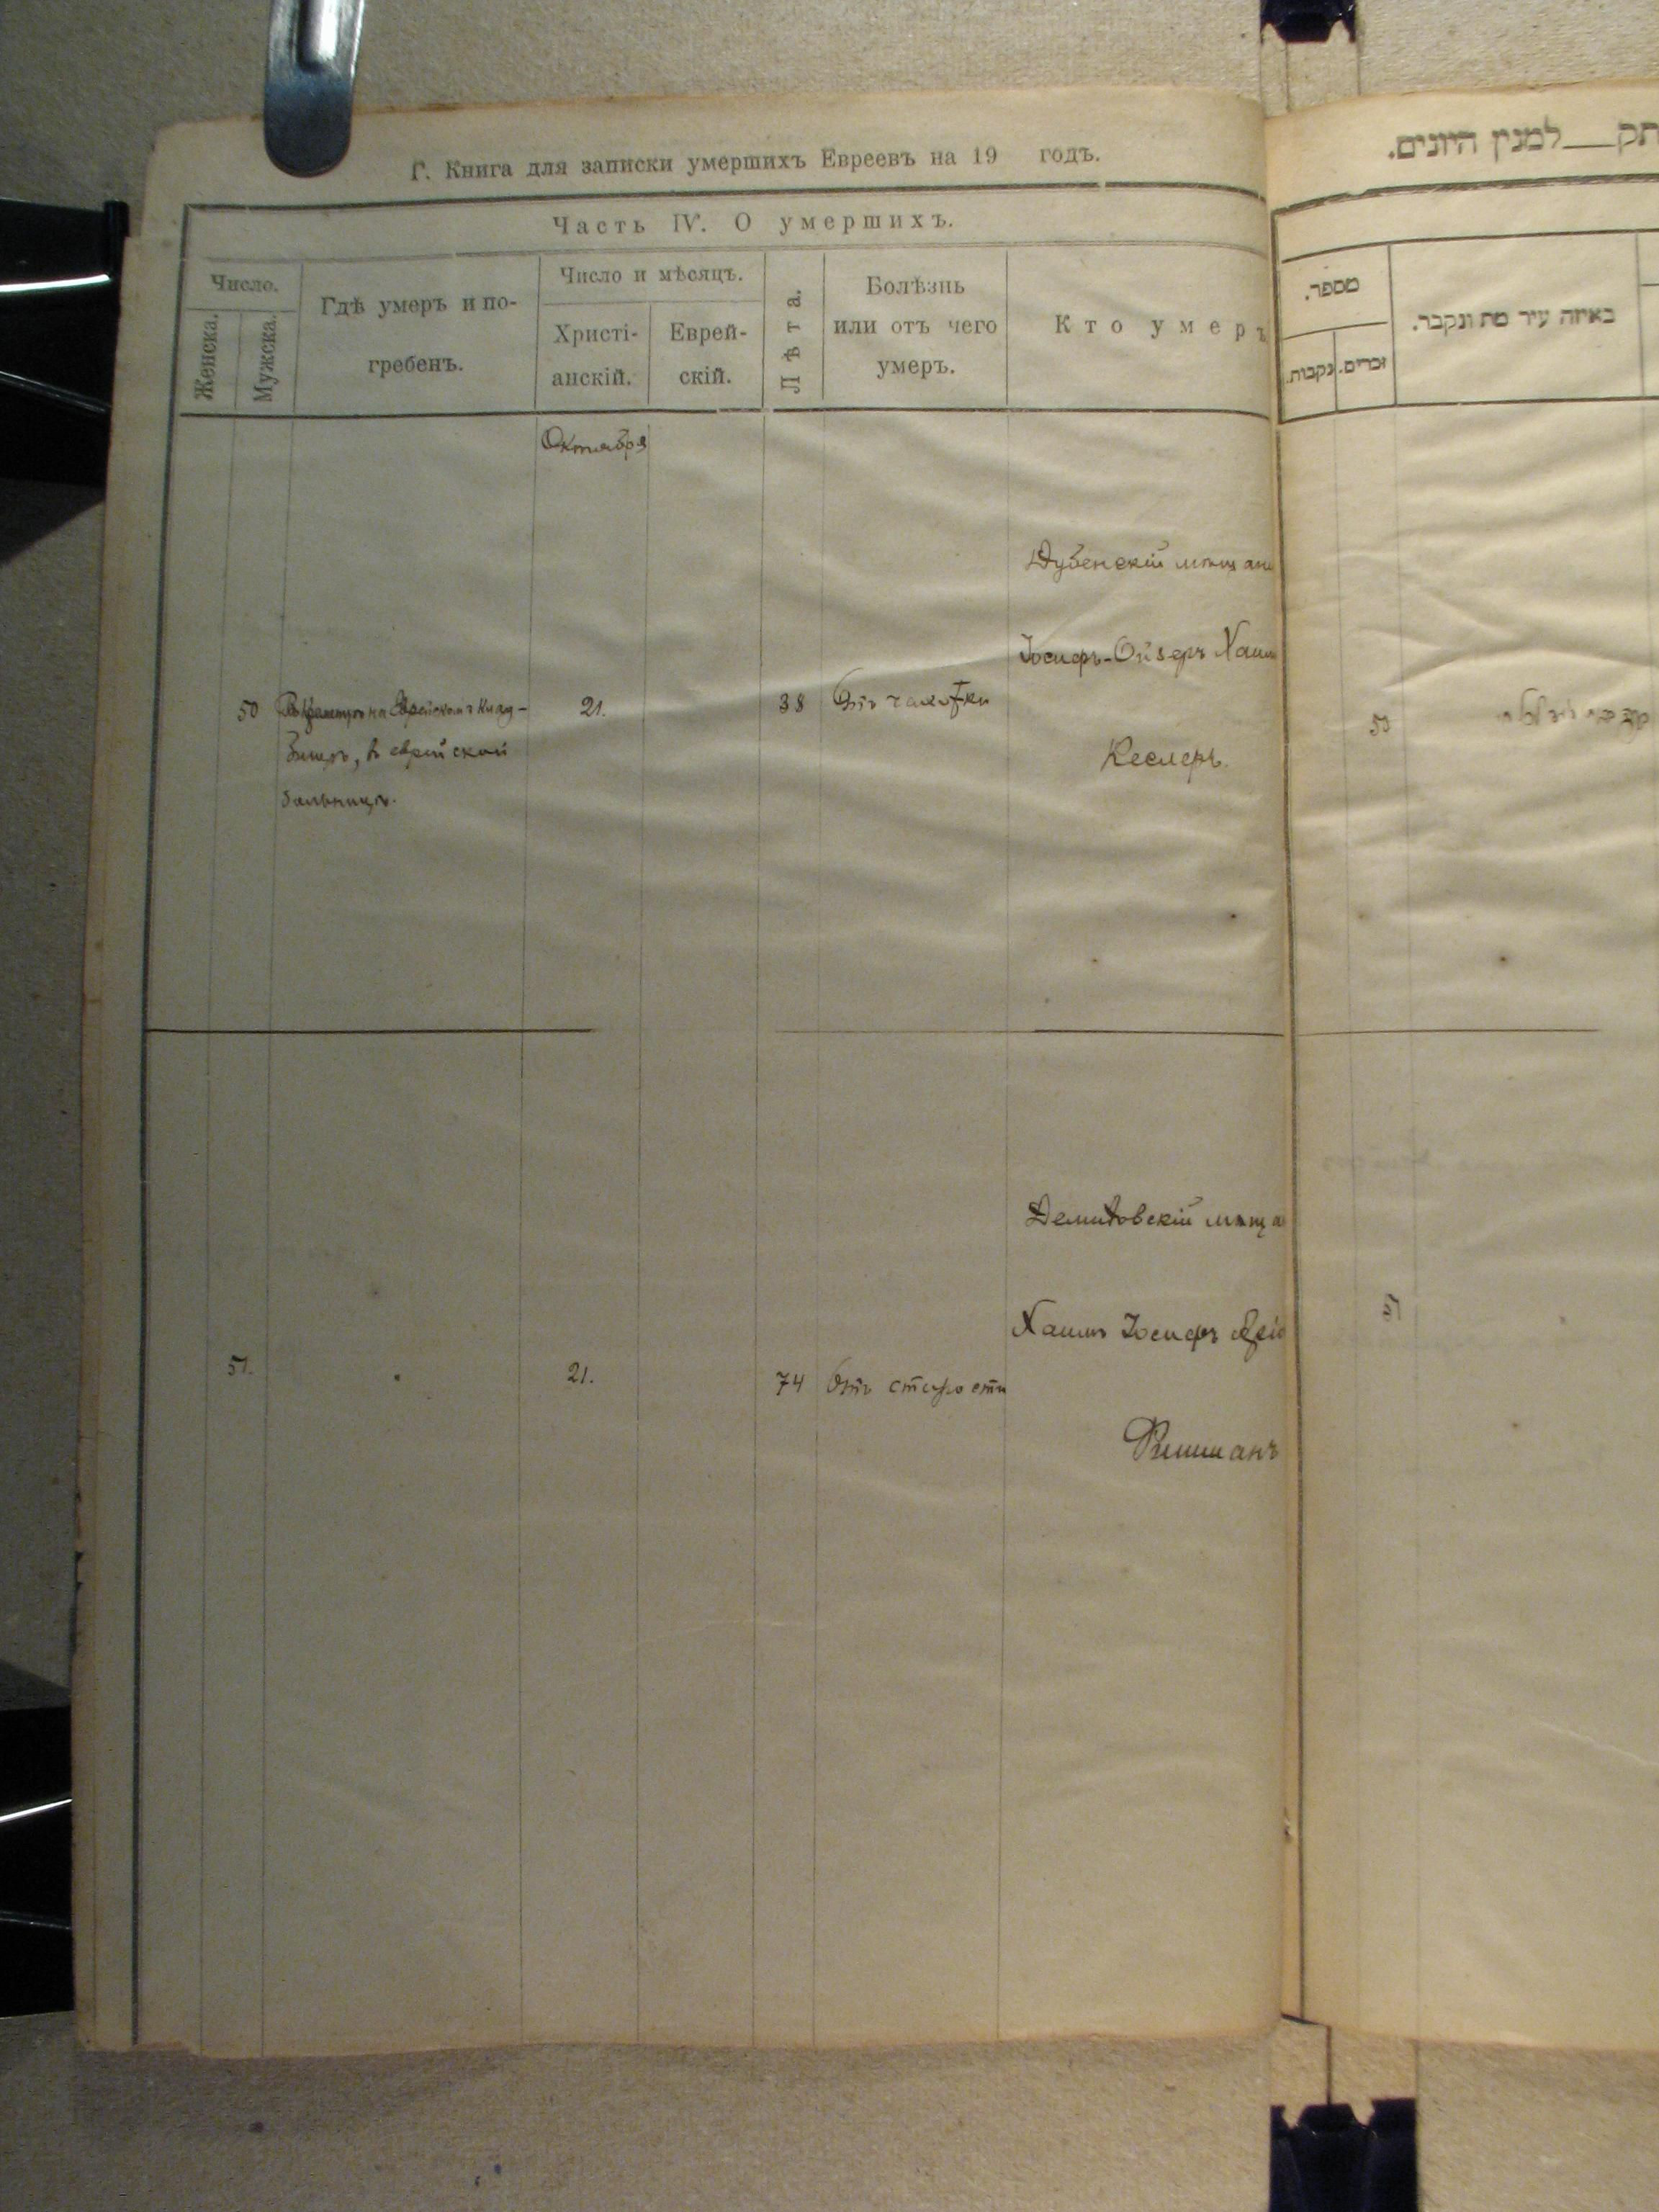 Г. Книга для записки умершихъ Евреевъ на 19 годъ.
Часть IV. О умершихъ.
Число.
Женска.
Мужска.
Гдѣ умеръ и по-
гребенъ.
Число и мѣсяцъ.
Христі-
анскій.
Еврей-
скій.
Лѣта.
Болѣзнь
или отъ чего
умеръ.
Кто умеръ
Октября
Дубенскій мѣщани
Іосифъ-Ойзеръ Хаим
Кеслеръ.
50
на Еврейскомъ клад-
бищѣ, въ еврейской
больницѣ.
21.
38
Отъ чахотки
Демидовскій мѣща
Хаимъ Іосифъ
Фишманъ
51.
21.
74
Отъ старости
תק__למנין היונים.
מספר.
נקבות.
זכרים.
באיזה עיר מת ונקבר.
50
51